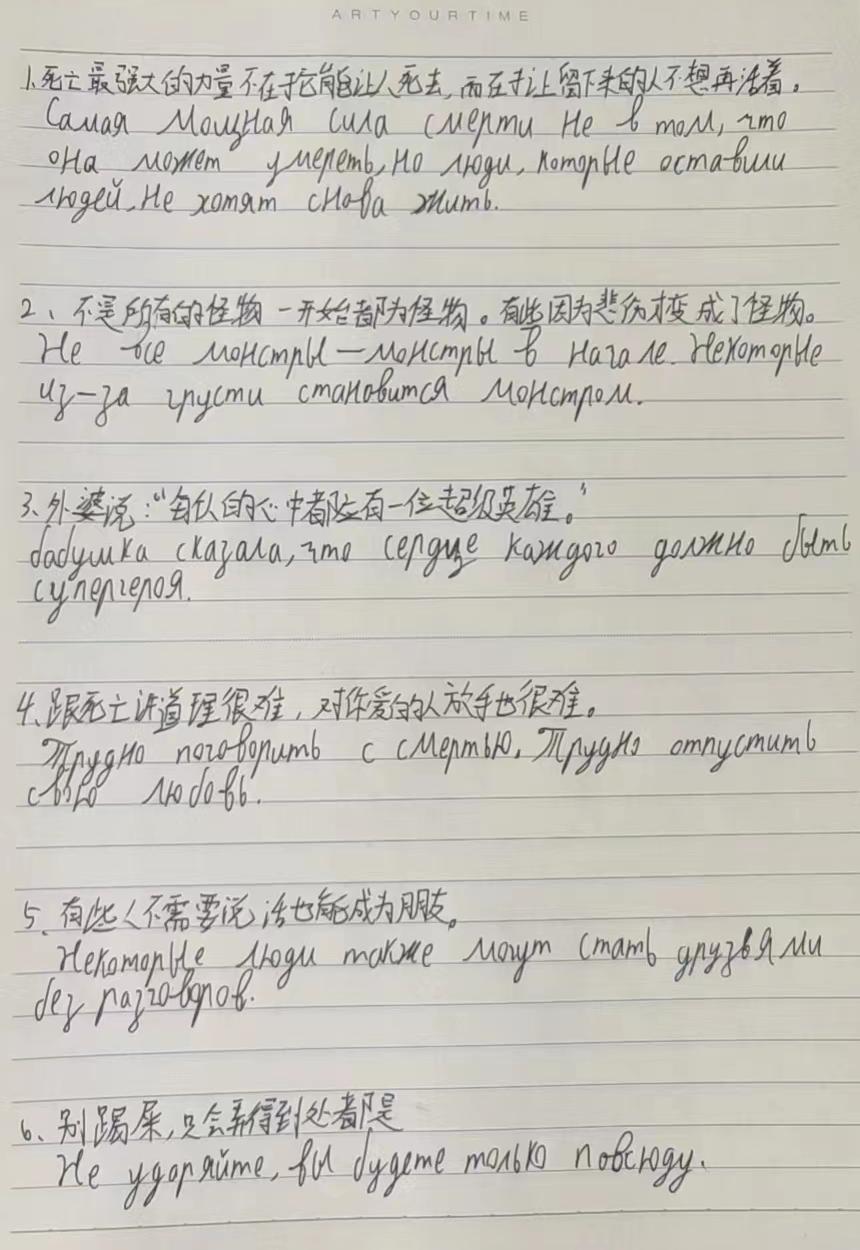 ARTYOURTIME
1.死亡最强大的力量不在于它能让人死去,而在于让留下来的人不想再活着。
Самая мощная сила смерти не в том, что
она может умереть, но люди, которые оставили
людей, не хотят снова жить.
2、不是所有的怪物一开始都为怪物。有些因为悲伤才变成了怪物。
Не все монстры—монстры в начале. Некоторые
из-за грусти становится монстром.
3、外婆说:“每个人的心中都应有一位超级英雄。”
бабушка сказала, что сердце каждого должно быть
супергероя.
4、跟死亡讲道理很难,对你爱的人放手也很难。
Трудно поговорить с смертью, Трудно отпустить
свою любовь.
5、有些人不需要说话也能成为朋友。
Некоторые люди также могут стать друзьями
без разговоров.
6、别踢屎,只会弄得到处都是
Не ударяйте, вы будете только повсюду.